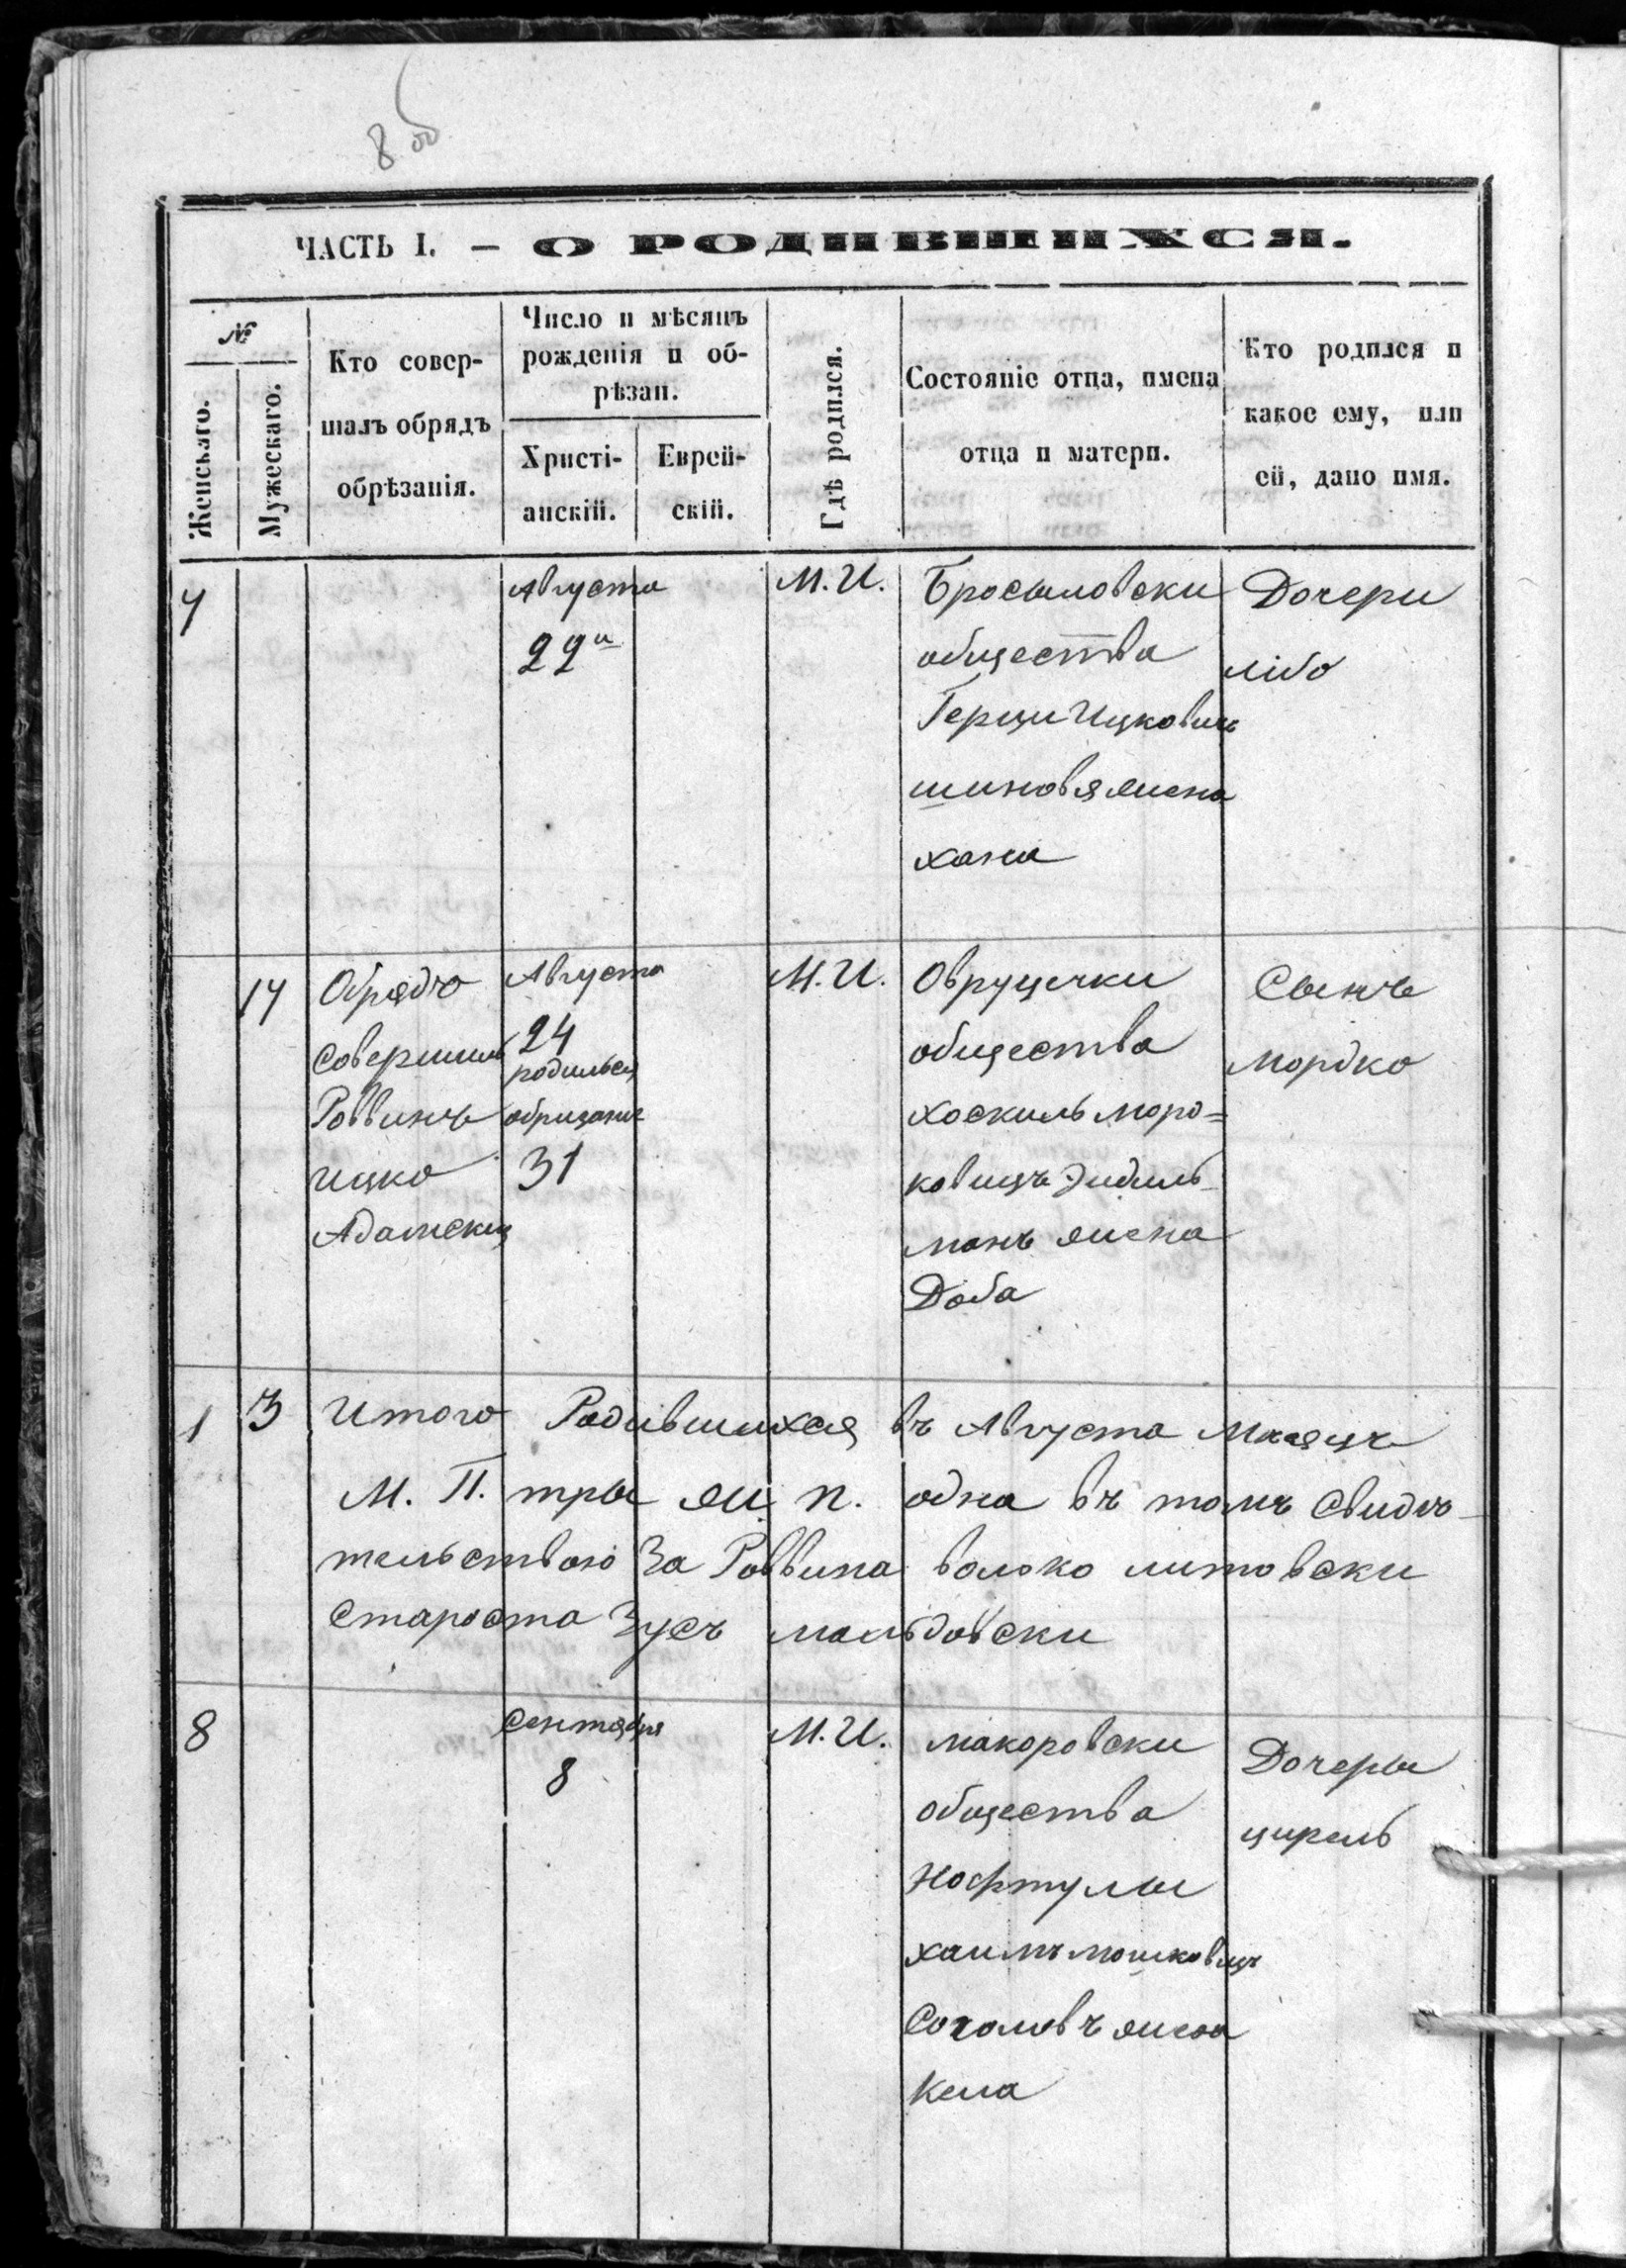 8 об
ЧАСТЬ I. — О РОДИВШИХСЯ.
№
Женскаго.
Мужескаго.
Кто совер-
шалъ обрядъ
обрѣзанія.
Число и мѣсяцъ
рожденія и об-
рѣзан.
Христі-
анскій.
Еврей-
скій.
Гдѣ родился.
Состояніе отца, имена
отца и матери.
Кто родился и
какое ему, или
ей, дано имя.
7
Августа
22
М. И.
Бросыловски
общества
Герши Ицковичъ
шиновя жена
хана
Дочери
либо
14
Обрядъ
Совершилъ
Роввинъ
ицко
Адамский
Августа
24
родилься
обризание
31
М. И.
Овруцчки
общества
хоскиль моро=
ковицъ Эидиль-
манъ жена
Доба
Сынъ
мордко
1 3 Итого Родившихся въ Августа Мисяцъ
М. П. тры ж п. одна въ томъ Свидѣ-
тельствою За Роввина волько литовски
Староста Зусъ мальдовски
8
Сентября
8
М. И.
макоровски
общества
Нофтулы
хаимъ мошковицъ
жена
Кела
Дочеры
цирель